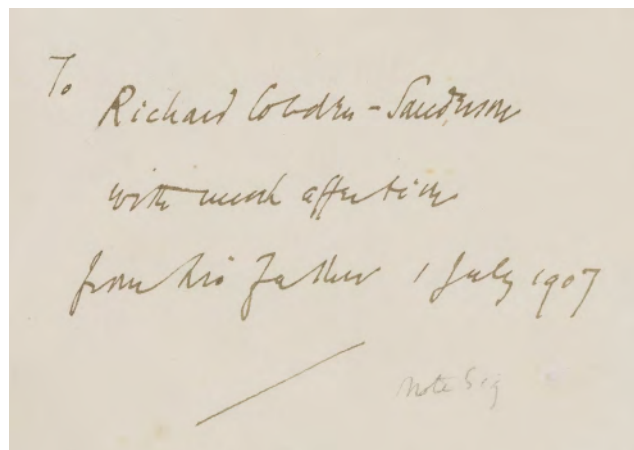 To
Richard Cobden-Sanderson
with much affection
from his Father 1 July 1907
Note Sig